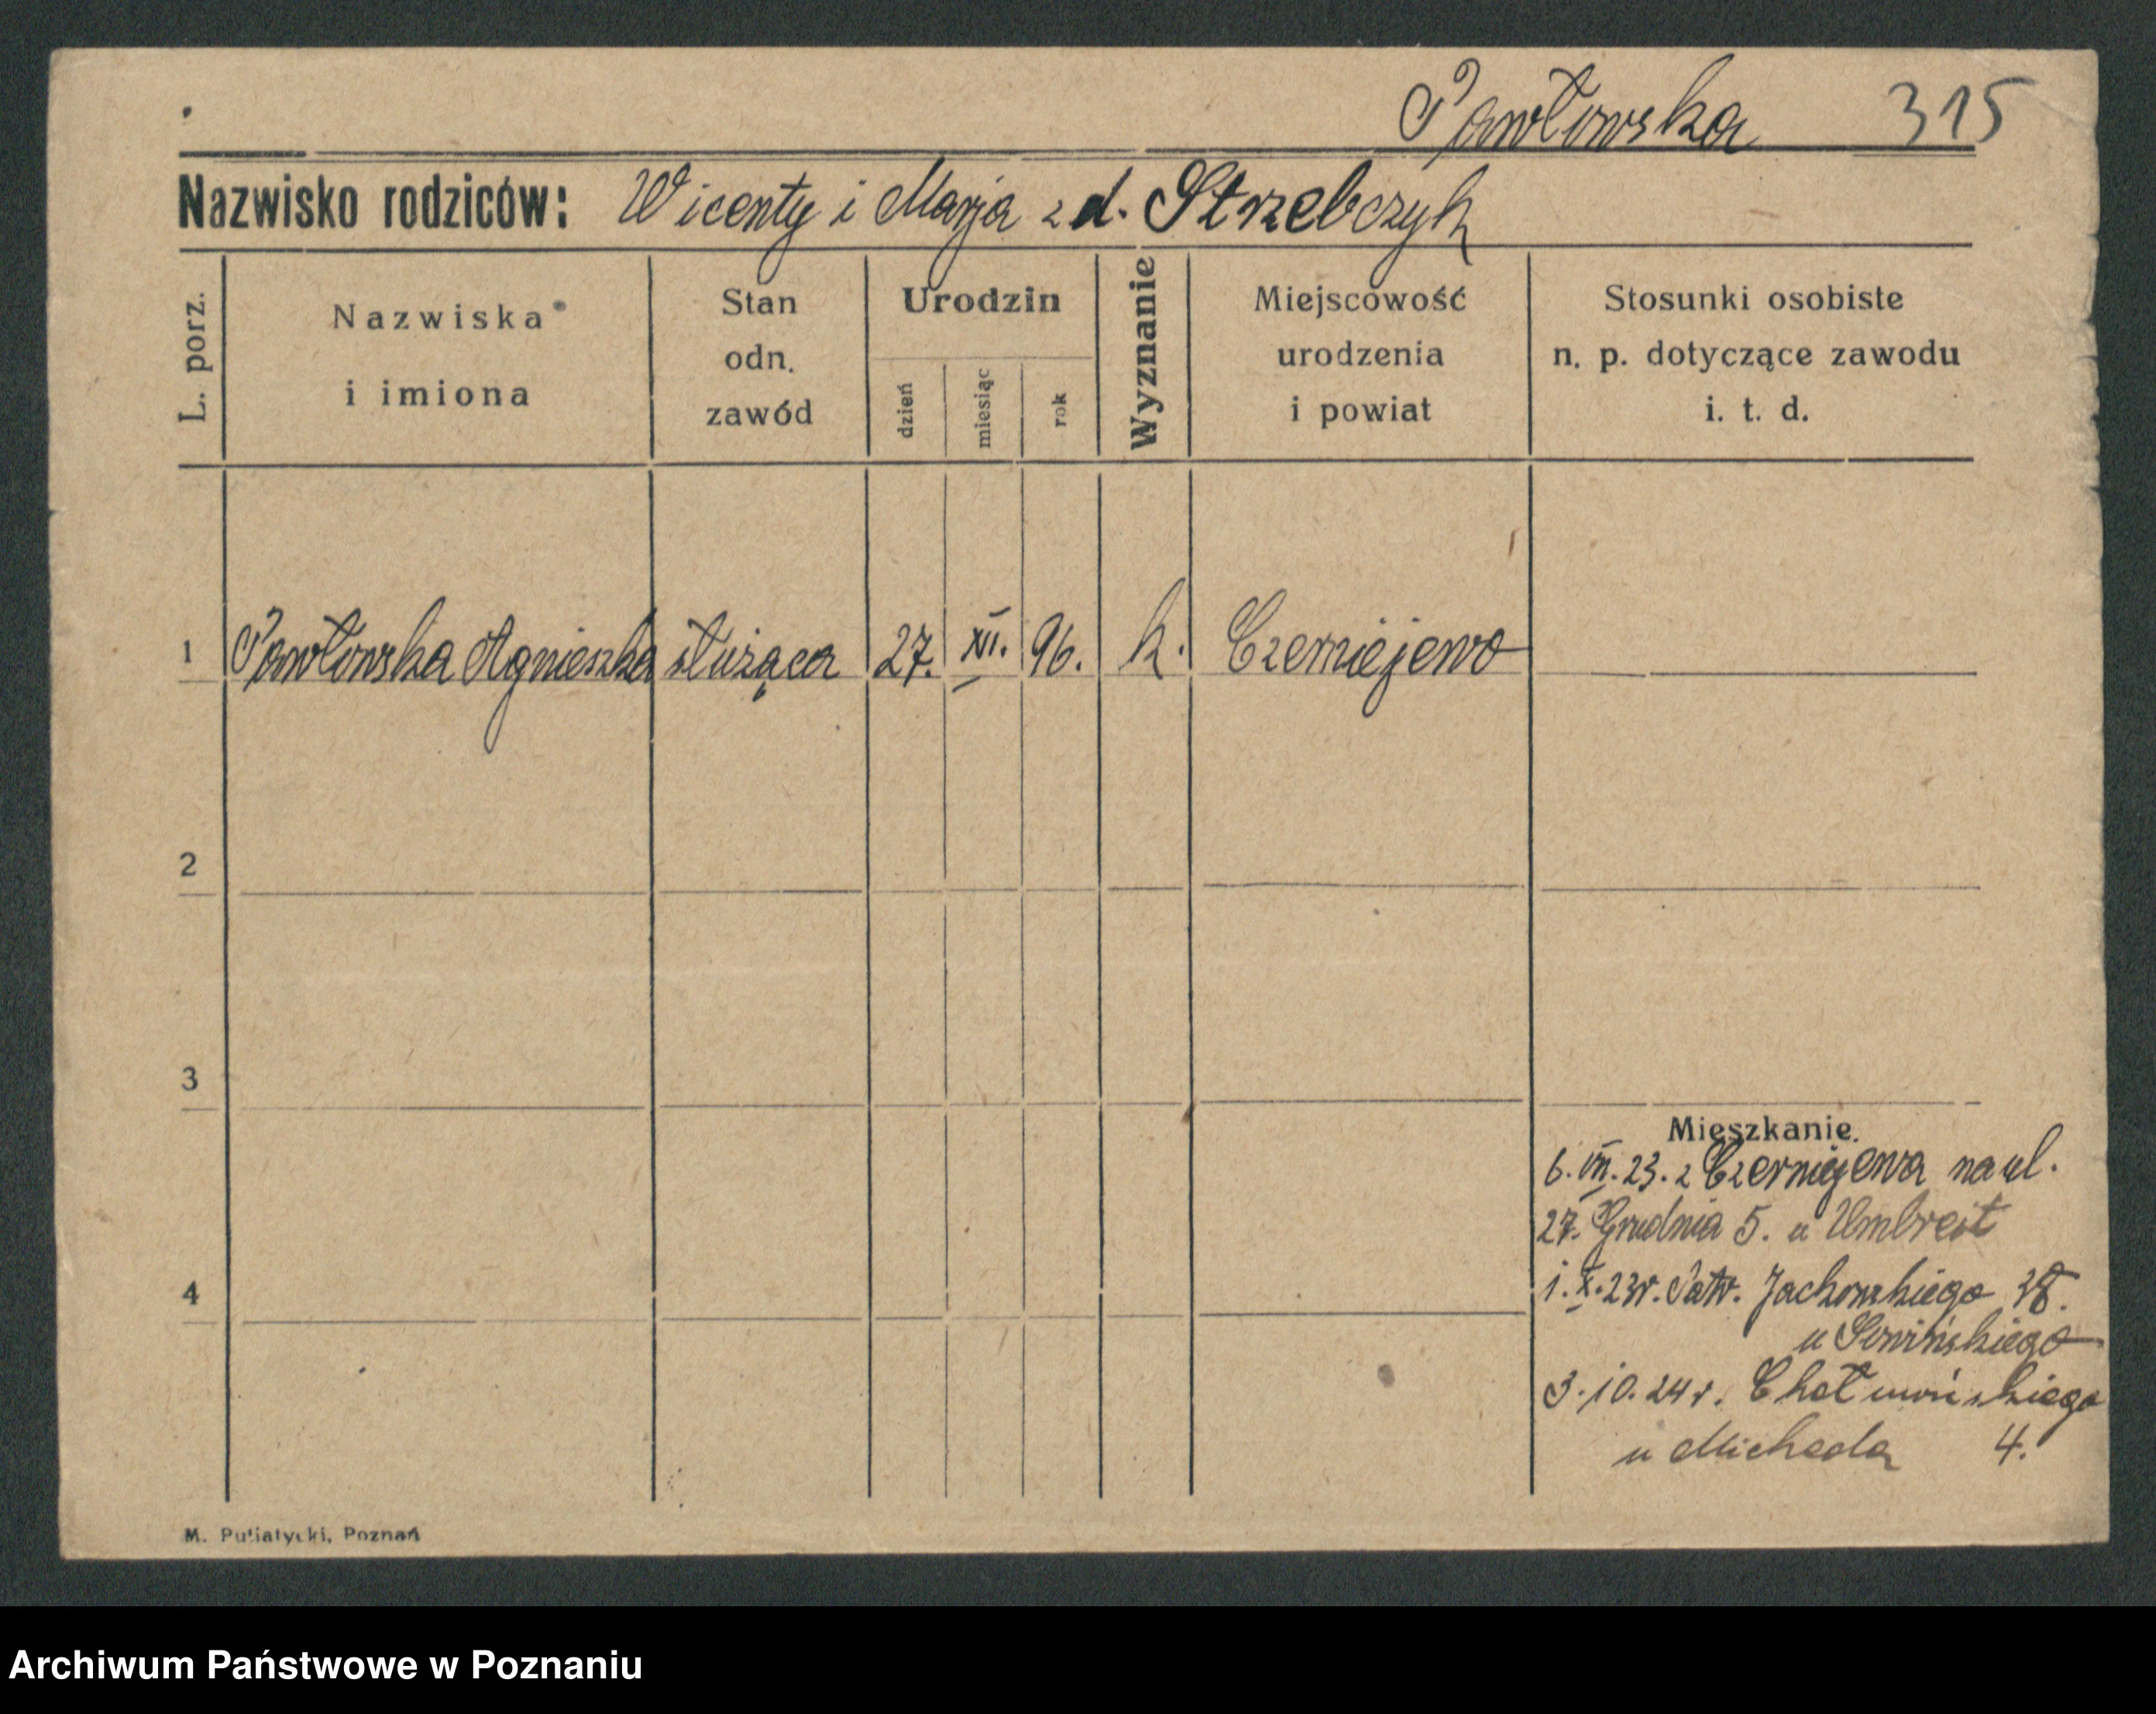 Pawłowska 315
Nazwisko rodziców: Wicenty i Marja z d. Strzebczyk
L. porz.
Nazwiska i imiona
Stan odn. zawód
Urodzin
dzień
miesiąc
rok
Wyznanie
Miejscowość urodzenia i powiat
Stosunki osobiste n. p. dotyczące zawodu i. t. d.
1 Pawłowska Agnieszka służąca 27. XII. 96. k. Czerniejewo
2
3
Mieszkanie.
6. VII. 23. z Czerniejewa na ul.
27. Grudnia 5. u Umbreit
4
1. X. 23r. Patr. Jackowskiego 38.
u Sowińskiego
3. 10. 24 r.
u 4.
M. Putiatycki, Poznań
Archiwum Państwowe w Poznaniu